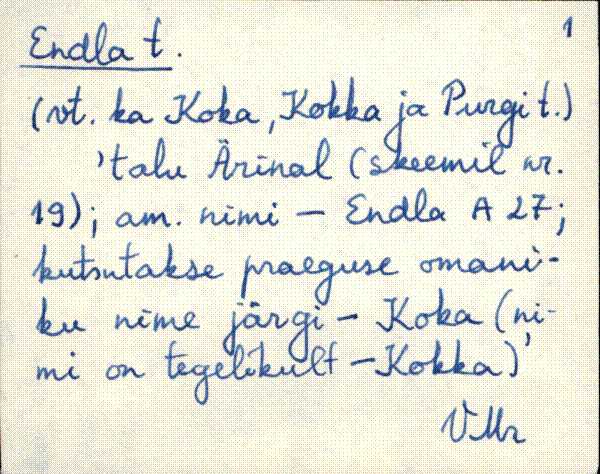 1
Endla t.
(vt. ka Koka, Kokka ja Purgi t.)
'talu Ärinal (skeemil nr.
19); am. nimi – Endla A 27;
kutsutakse praeguse omani-
ku nime järgi – Koka (ni-
mi on tegelikult – Kokka)
VMr